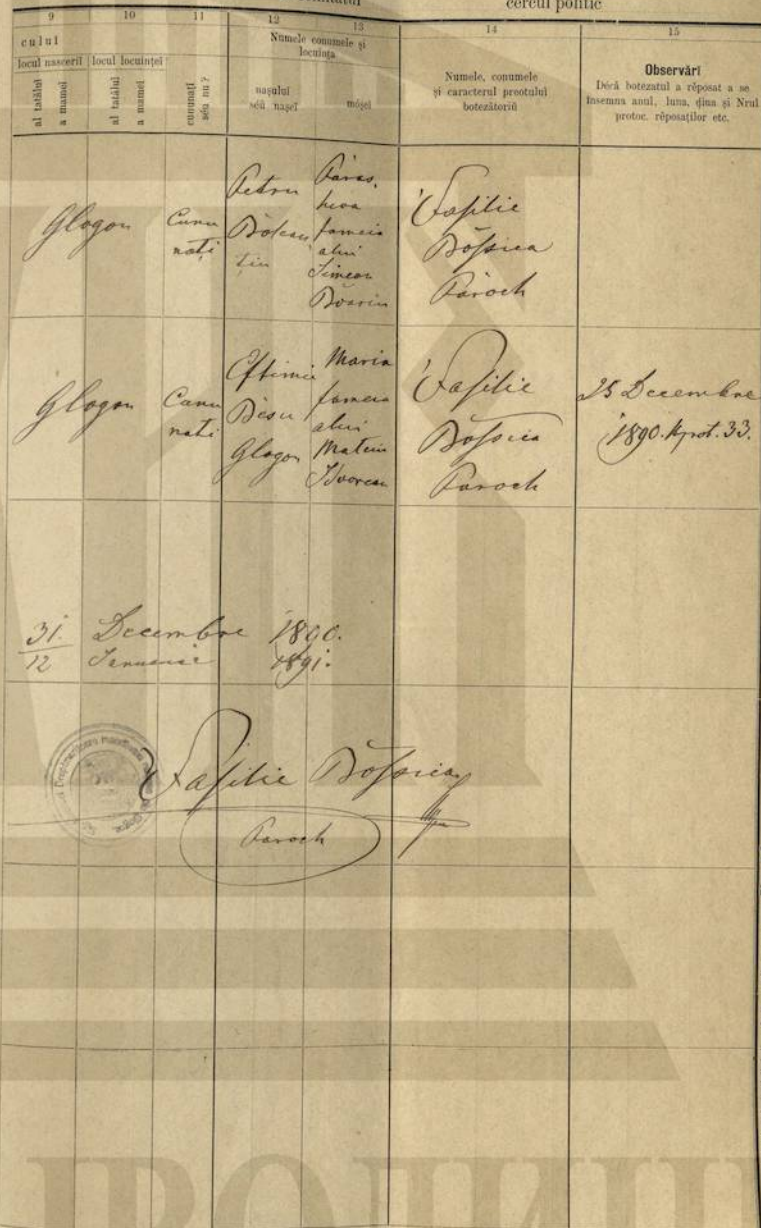 cercul politic
9 10 11 12 13 14 15
cului
locul nascerii locul locuinței
al tatălui
a mamei
al tatălui
a mamei
cununați
séu nu?
Numele conumele și
locuința
nașului
séu nașei
móșei
Numele, conumele
și caracterul preotului
botezătoriu
Observări
Décă botezatul a rĕposat a se
însemna anul, luna, ḑiua și Nrul
protoc. rĕposaților etc.
Glogon
Cunu
nați
Petru
Paras.
heva
fameia
alui
Simeon
Vasilie
Paroch
Glogon
Cunu
nati
Eftimie
Glogon
Maria
fameia
alui
Mateiu
Vasilie
Paroch
25 Decembre
1890. Nprot. 33.
31. Decembre 1890.
12 Ianuarie 1891.
Vasilie
Paroch